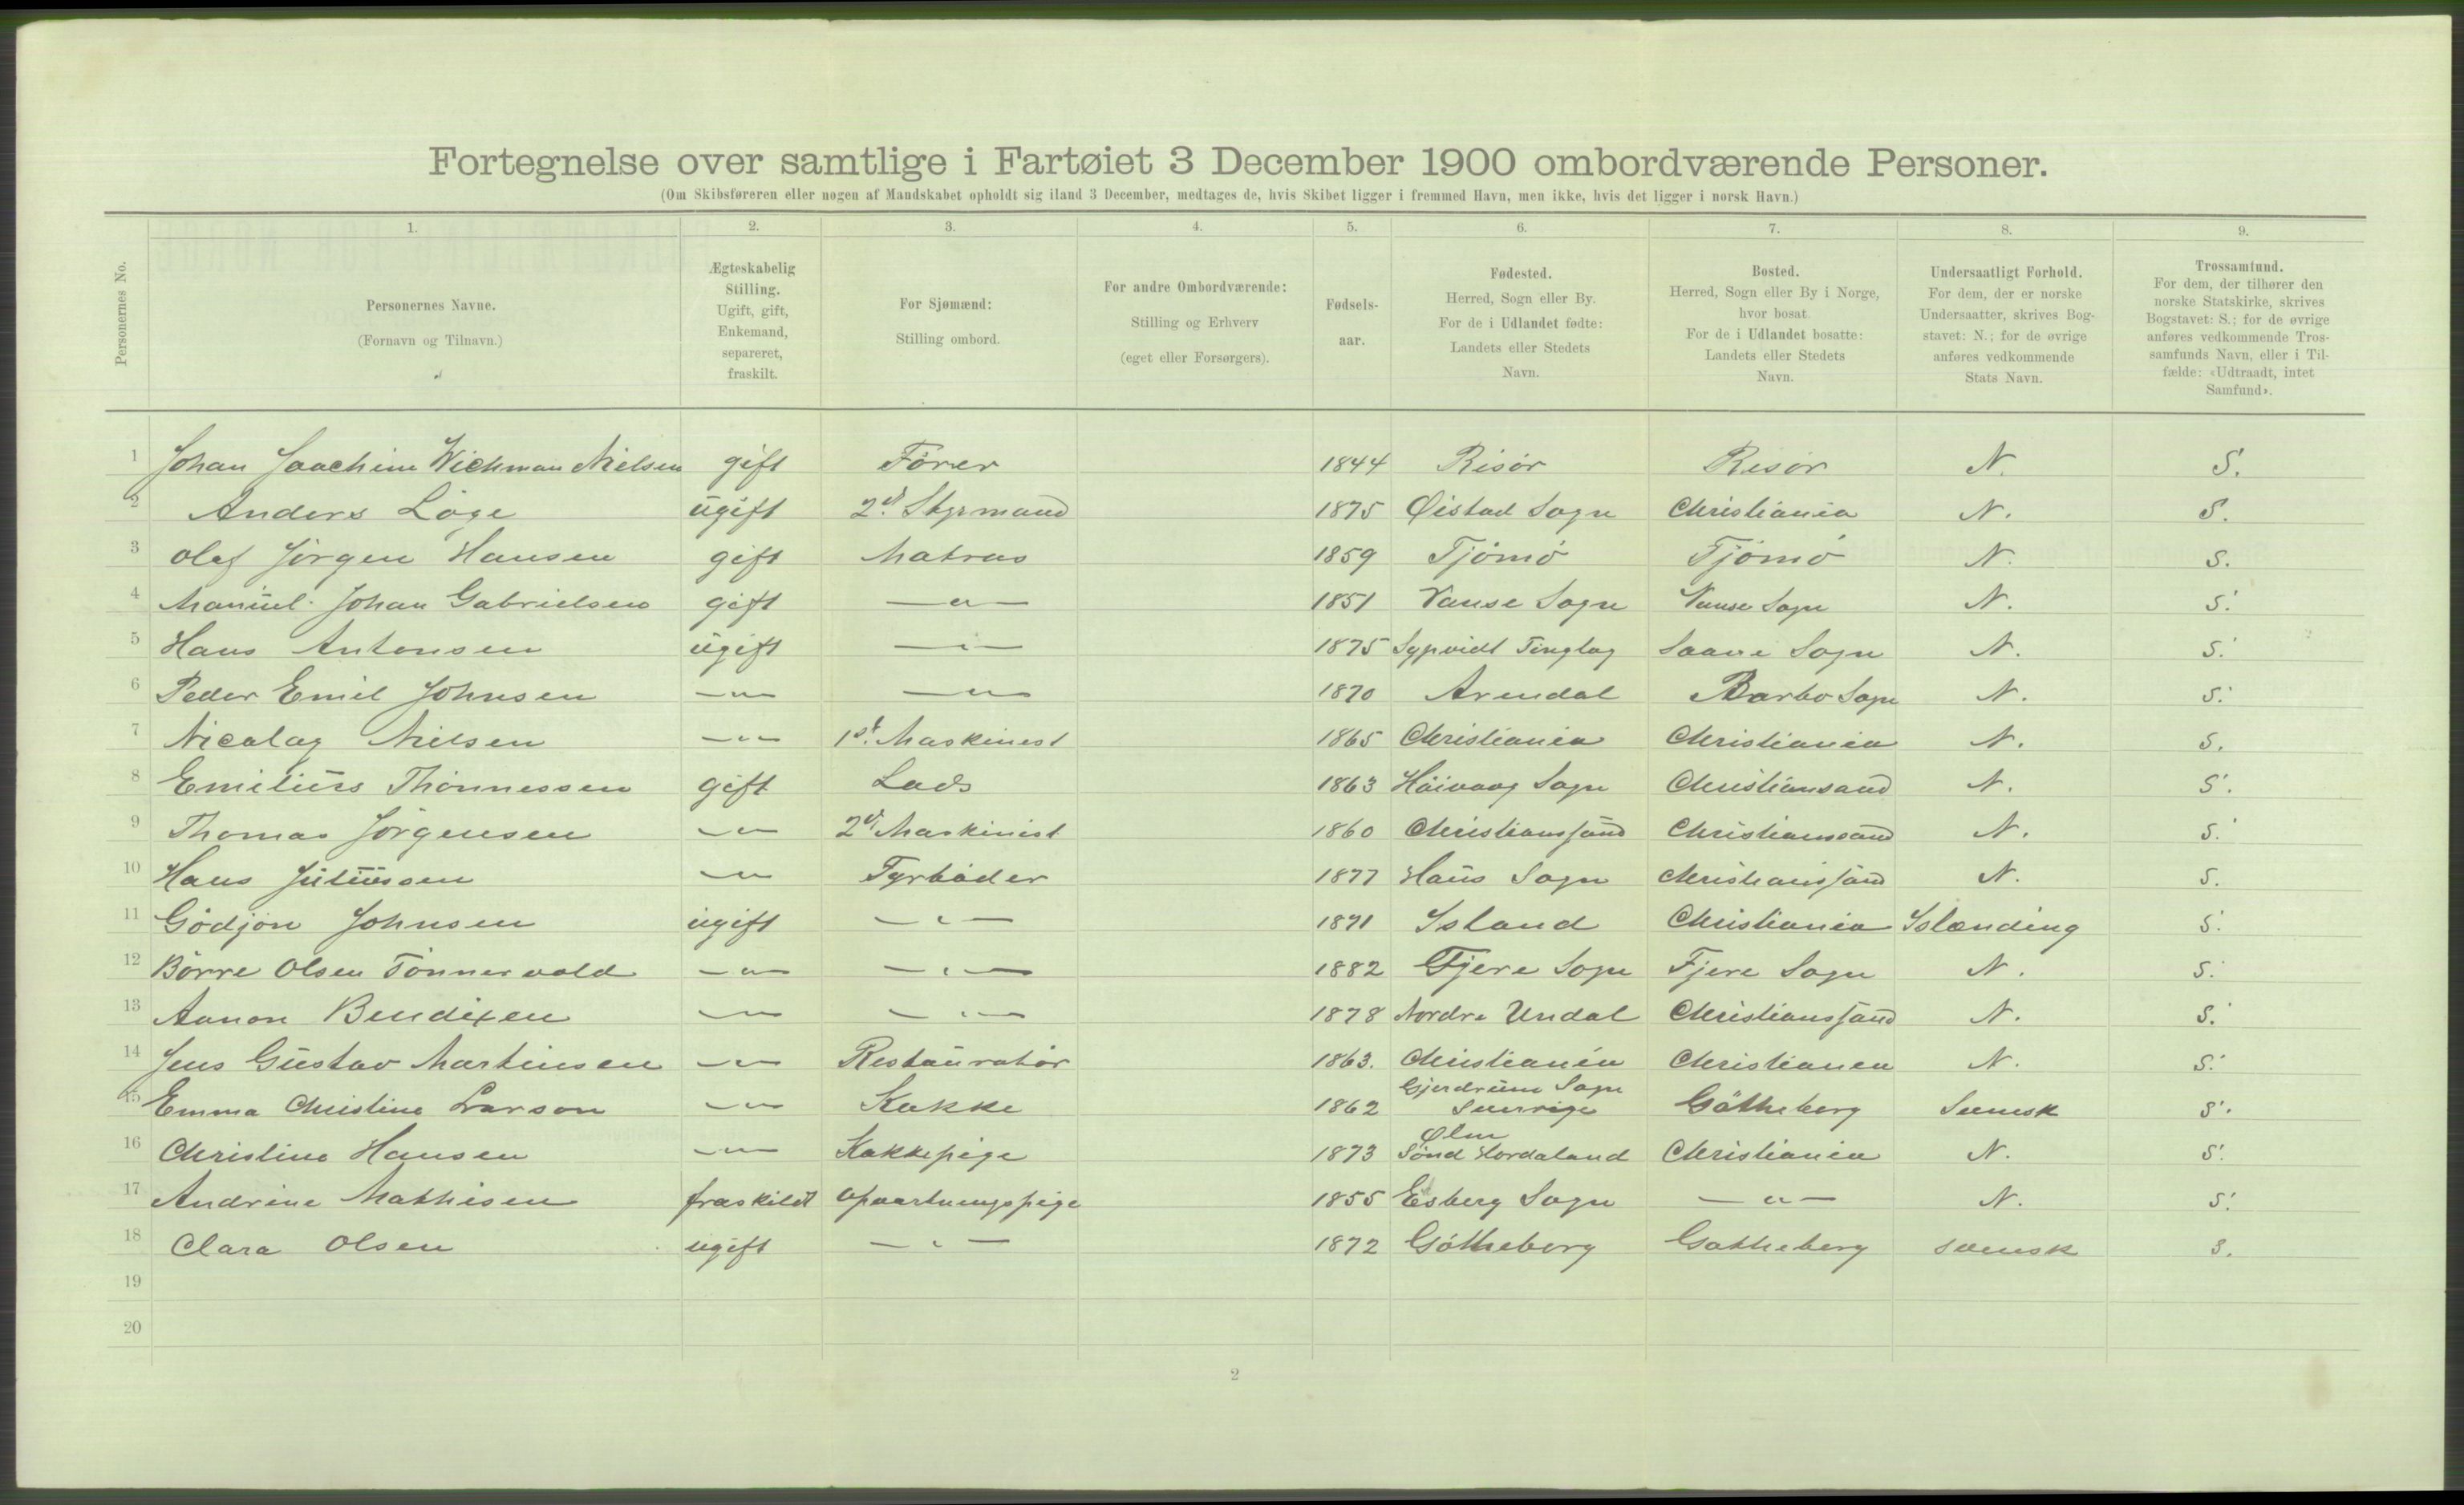 Fortegnelse over samtlige i Fartøiet 3 December 1900 ombordværende Personer.
(Om Skibsføreren eller nogen af Mandskabet opholdt sig iland 3 December, medtages de, hvis Skibet ligger i fremmed Havn, men ikke, hvis det ligger i norsk Havn.)
Personernes No.
1.
Personernes Navne.
(Fornavn og Tilnavn.)
2.
Ægteskabelig
Stilling.
Ugift, gift,
Enkemand,
separeret,
fraskilt.
3.
For Sjømænd:
Stilling ombord.
4.
For andre Ombordværende:
Stilling og Erhverv
(eget eller Forsørgers).
5.
Fødsels-
aar.
6.
Fødested.
Herred, Sogn eller By.
For de i Udlandet fødte:
Landets eller Stedets
Navn.
7.
Bosted.
Herred, Sogn eller By i Norge,
hvor bosat.
For de i Udlandet bosatte:
Landets eller Stedets
Navn.
8.
Undersaatligt Forhold.
For dem, der er norske
Undersaatter, skrives Bog-
stavet: N.; for de øvrige
anføres vedkommende
Stats Navn.
9.
Trossamfund.
For dem, der tilhører den
norske Statskirke, skrives
Bogstavet: S.; for de øvrige
anføres vedkommende Tros-
samfunds Navn, eller i Til-
fælde: «Udtraadt, intet
Samfund».
1 Johan Joachim Wichman Nielsen gift Förer 1844 Risör Risör N. S.
2 Anders Löge ugift 2d. Styrmand 1875 Øistad Sogn Christiania N. S.
3 Olaf Jörgen Hansen gift Matros 1859 Tjömö Tjömö N. S.
4 Manuel Johan Gabrielsen gift —"— 1851 Vanse Sogn Vanse Sogn N. S.
5 Hans Antonsen ugift —"— 1875 Tinglag Sogn N. S.
6 Peder Emil Johnsen —"— —"— 1870 Arendal Barbo Sogn N. S.
7 Nicolay Nielsen —"— 1st. Maskinist 1865 Christiania Christiania N. S.
8 Emilius Thönnessen gift Lods 1863 Höivaag Sogn Christiansand N. S.
9 Thomas Jörgensen —"— 2d. Maskinist 1860 Christianssand Christianssand N. S.
10 Hans Juliussen —"— Fyrböder 1877 Haus Sogn Christianssand N. S.
11 Gödjon Johnsen ugift —"— 1871 Island Christiania Islænding S.
12 Börre Olsen Tönnervold —"— —"— 1882 Fjere Sogn Fjere Sogn N. S.
13 Aanon Bendixen —"— —"— 1878 Nordre Undal Christianssand N. S.
14 Jens Gustav Martinsen —"— Restauratör 1863. Christiania Christiania N. S.
Gjerdrum Sogn
15 Emma Christine Larson —"— Kokke 1862 Sverrige Götheborg Svensk S.
Ølen
16 Christine Hansen —"— Kokkepige 1873 Sönd Hordaland Christiania N. S.
17 Andrine Mathisen fraskildt Opvartningspige 1855 Esberg Sogn —"— N. S.
18 Clara Olsen ugift —"— 1872 Götheborg Gotheborg svensk S.
19
20
2